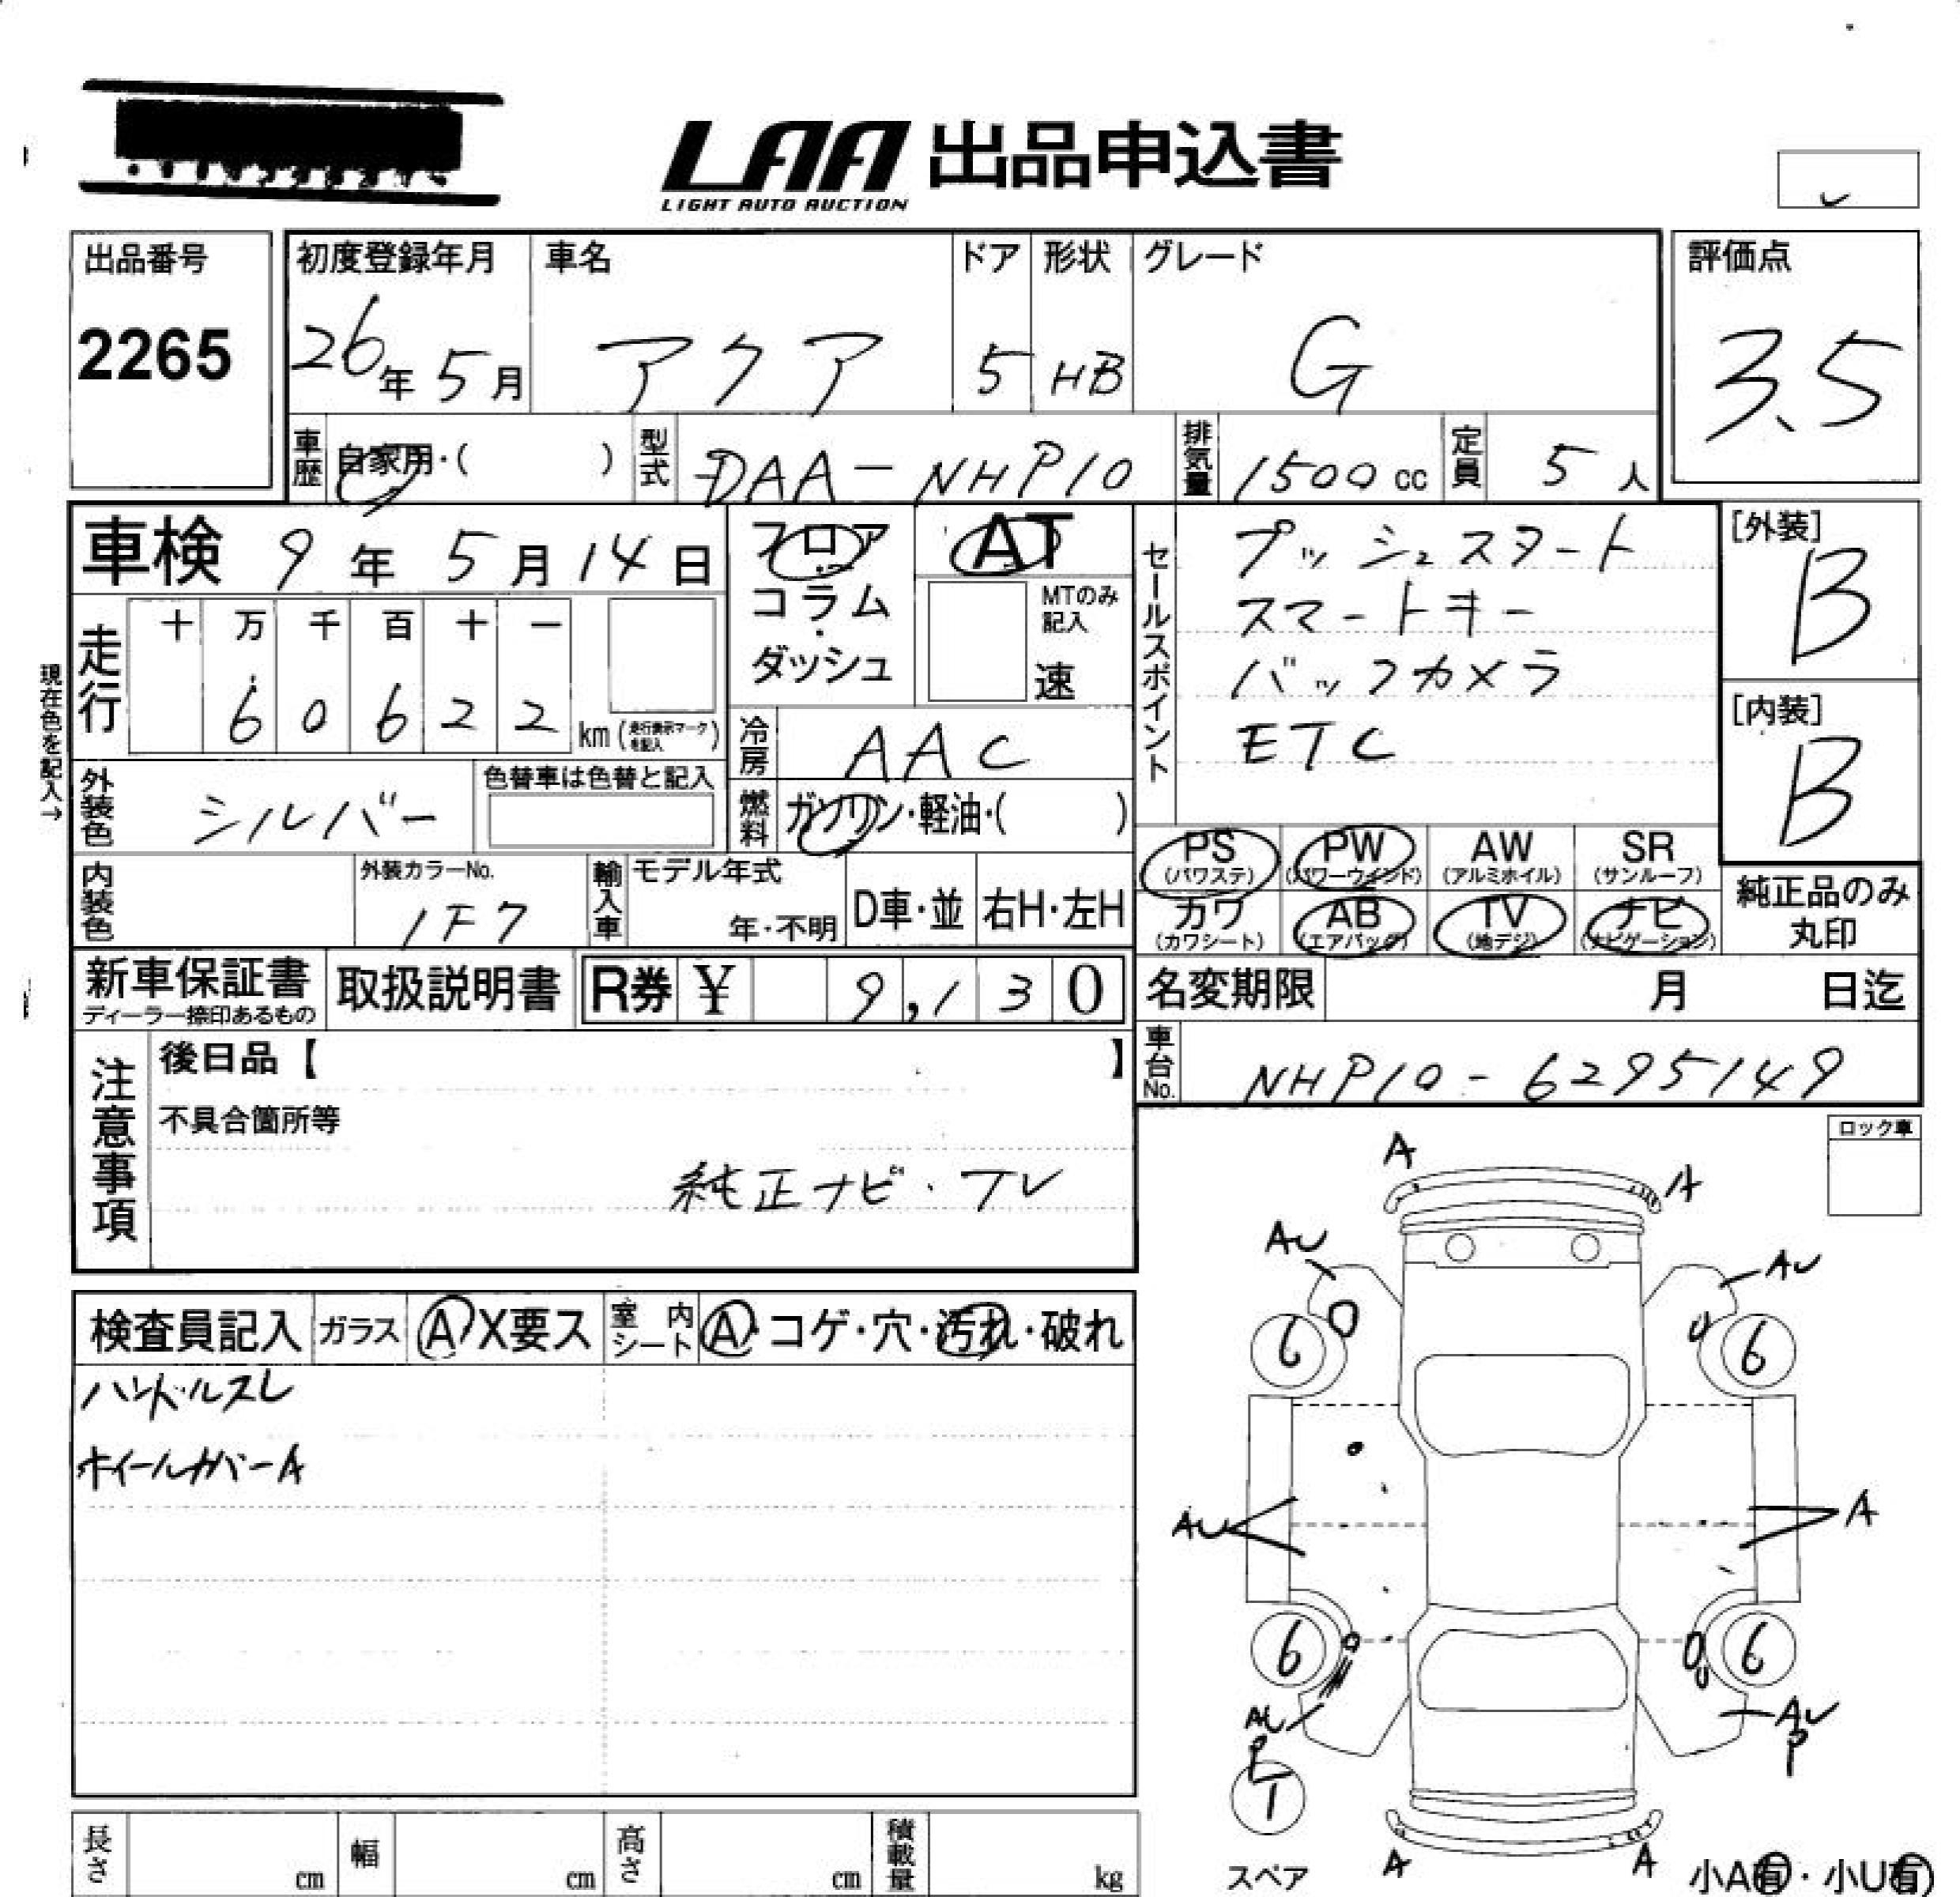 LAA 出品申込書
LIGHT AUTO AUCTION
出品番号
2265
初度登録年月
26年 5月
車名
アクア
ドア
5
形状
HB
グレード
G
評価点
3.5
車歴 自家用・( )
型式 DAA-NHP10
排気量 1500 cc
定員 5 人
車検 9年 5月 14日
フロア・コラム・ダッシュ
AT
MTのみ記入
速
セールスポイント
プッシュスタート
スマートキー
バックカメラ
ETC
[外装]
B
[内装]
B
現在色を記入→
走行
十 万 千 百 十 一
6 0 6 2 2 km (走行表示マークを記入)
冷房 AAC
外装色 シルバー
色替車は色替と記入
燃料 ガソリン・軽油・( )
PS (パワステ)
PW (パワーウインド)
AW (アルミホイル)
SR (サンルーフ)
カワ (カワシート)
AB (エアバッグ)
TV (地デジ)
ナビ (ナビゲーション)
純正品のみ
丸印
内装色
外装カラーNo.
1F7
輸入車
モデル年式
年・不明
D車・並
右H・左H
新車保証書
ディーラー捺印あるもの
取扱説明書
R券 ¥ 9,130
名変期限 月 日迄
車台No. NHP10-6295149
注意事項
後日品【 】
不具合箇所等
純正ナビ・TV
ロック車
検査員記入
ガラス A X要ス
室内シート A・コゲ・穴・汚れ・破れ
ハンドルスレ
ホイールカバーA
A
A
AU
AU
6
6
AU
A
6
6
AU
P
AU
P
T
スペア
A
A
小A有・小U有
長さ cm
幅 cm
高さ cm
積載量 kg